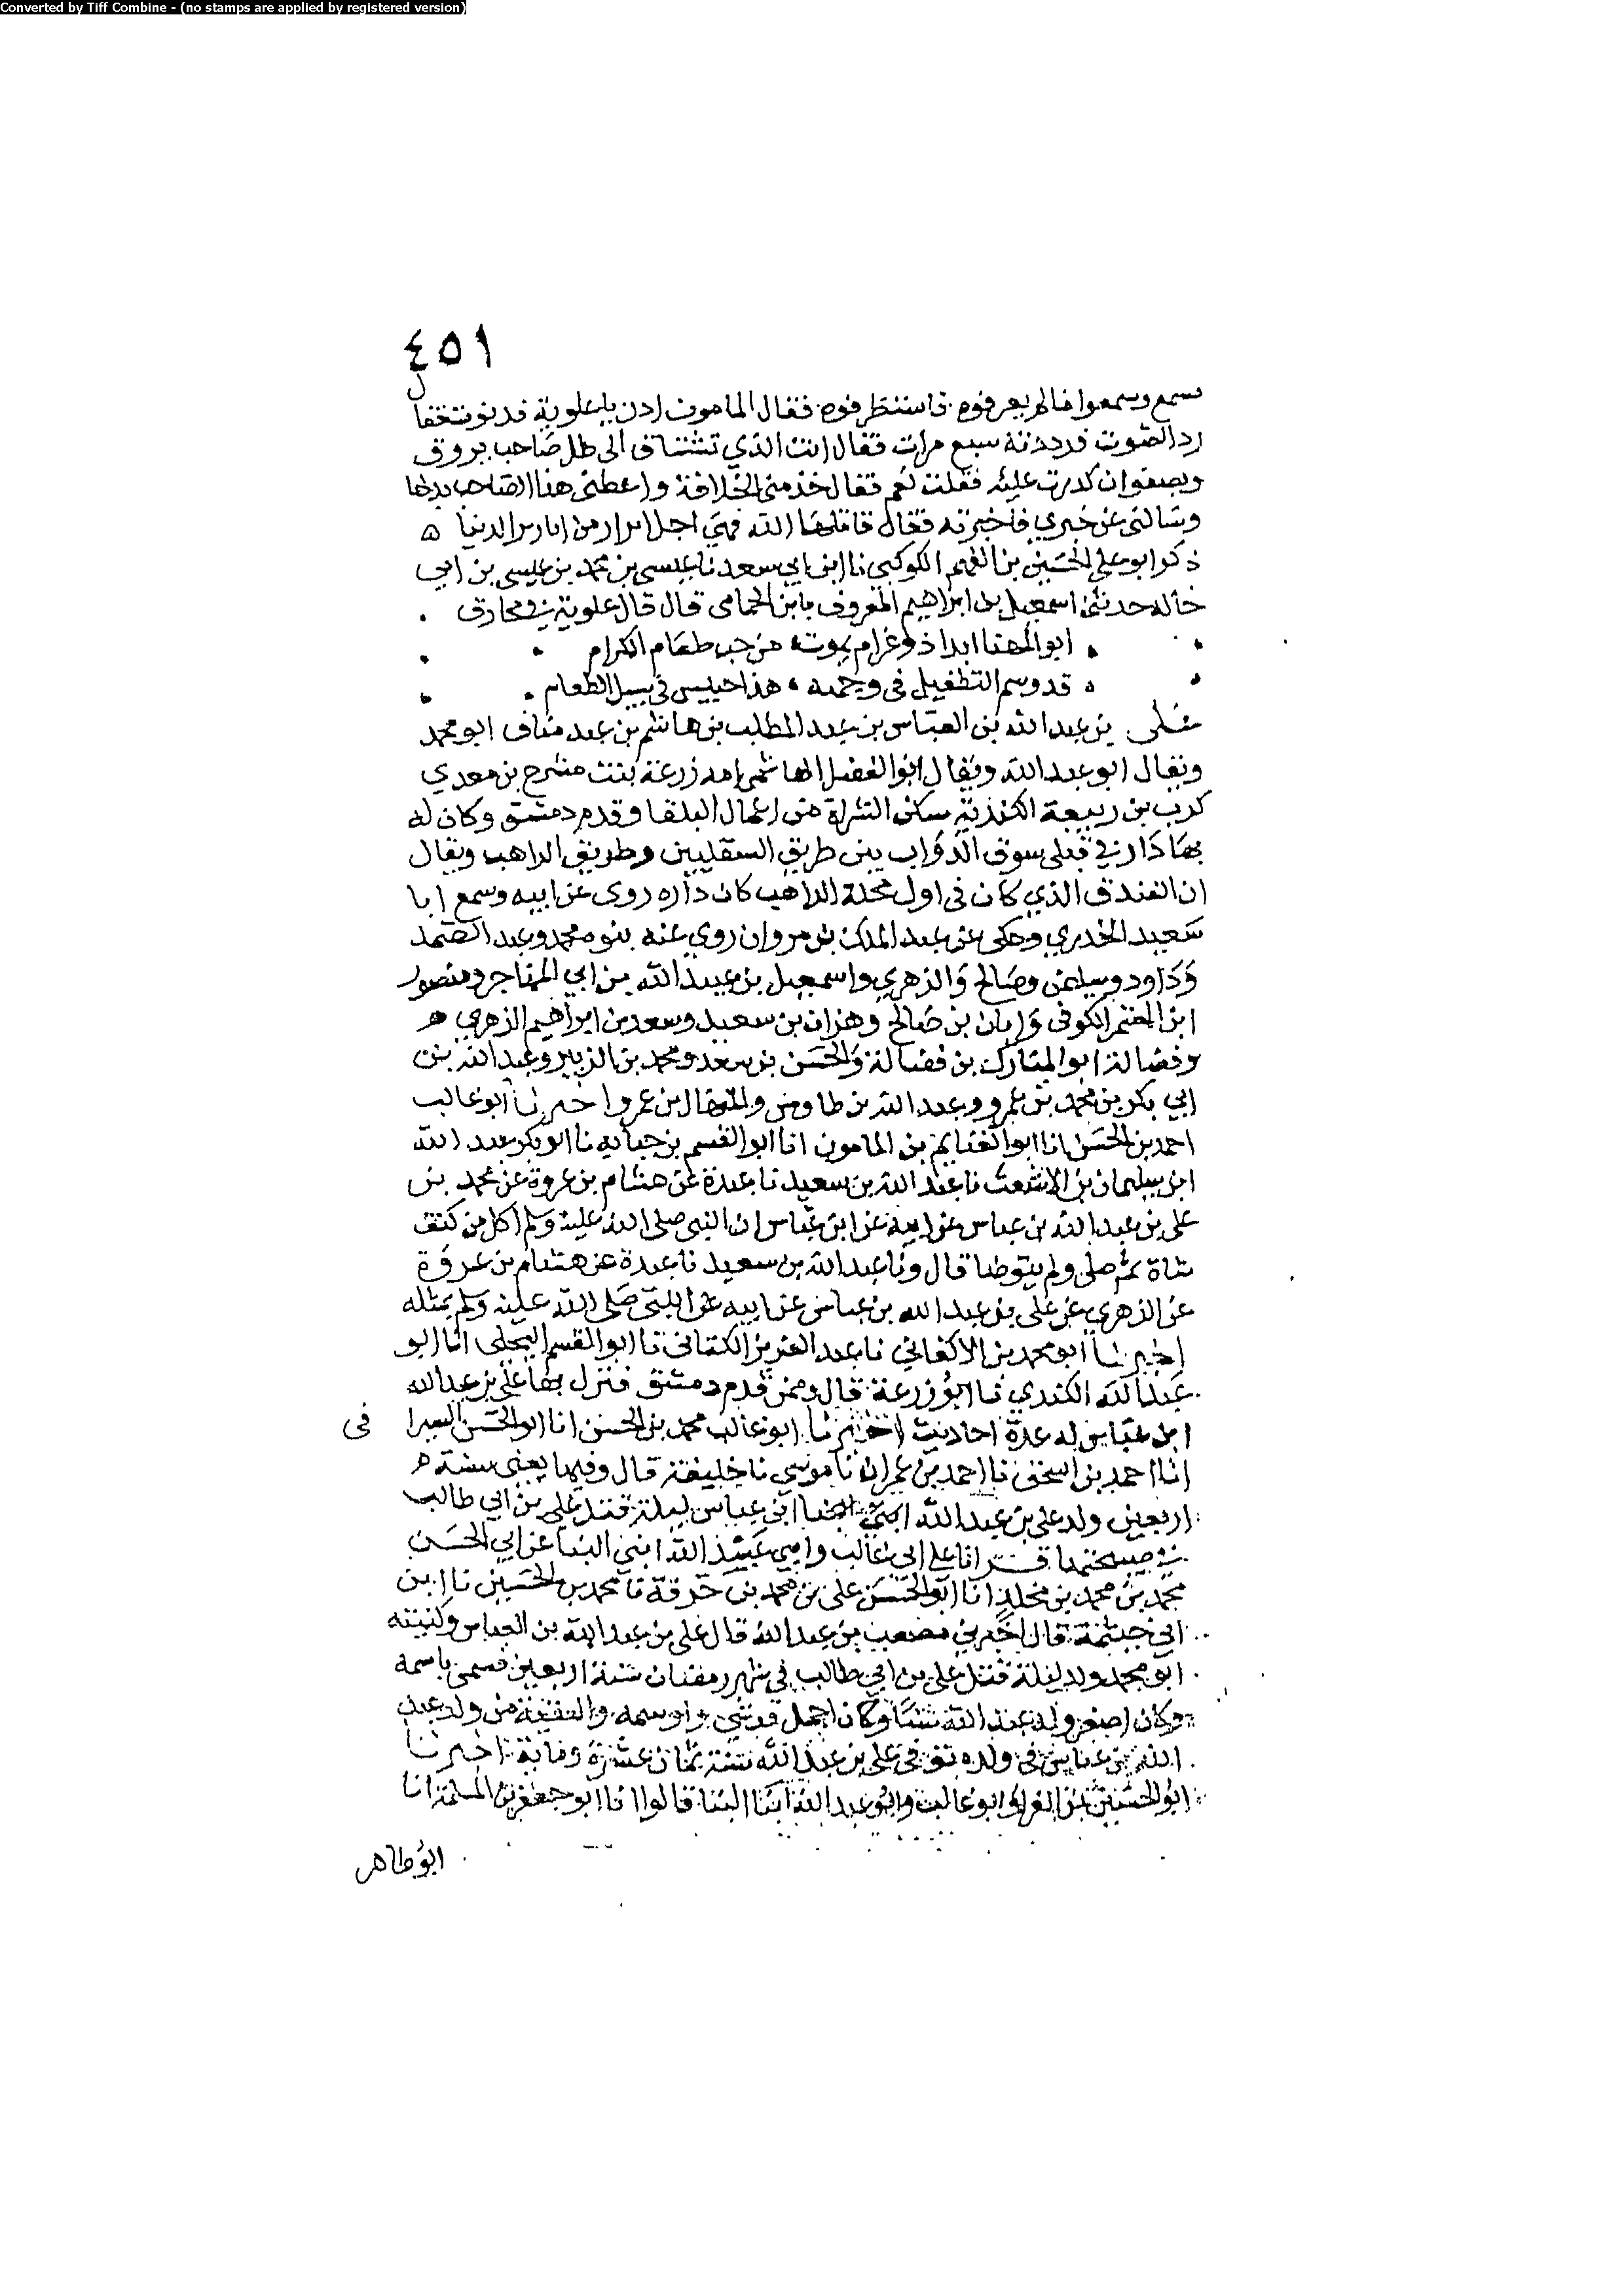 Converted by Tiff Combine - (no stamps are applied by registered version)
٤٥١
فسمع وسمعوا مالم يعرفوه فاستظرفوه فقال المامون ادن يا علوية فدنوت فقال
رد الصوت فرددته سبع مرات فقال انت الذي تشتاق الى ظل صاحب يروق
ويصفوا ان كدرت عليه فقلت نعم فقال خذ مني الخلافة واعطني هذا الصاحب بدلها
وسالني عن خبري فاخبرته فقال قاتلها الله فهي اجل ابزار من ابازير الدنيا ه
ذكر ابو علي الحسين بن القسم الكوكبي نا ابن ابي سعد نا عيسى بن محمد بن عيسى بن ابي
خاله حدثني اسمعيل بن ابراهيم المعروف بابن الحمامى قال قال علوية في مخارق
ابو المهنا ابدا ذو غرام يموت من حب طعام الكرام
قد وسم التطفيل فى وجهه هذا حبيس في سبيل الطعام
على بن عبد الله بن العباس بن عبد المطلب بن هاشم بن عبد مناف ابو محمد
ويقال ابو عبد الله ويقال ابو الفضل الهاشمي امه زرعة بنت مشرح بن معدي
كرب بن ربيعة الكندية سكن الشراة من اعمال البلقا وقدم دمشق وكان له
بها دار في قبلى سوق الدواب بين طريق السقليين وطريق الراهب ويقال
ان الفندق الذي كان فى اول محلة الراهب كان داره روى عن ابيه وسمع ابا
سعيد الخدري وحكى عن عبد الملك بن مروان روي عنه بنوه محمد وعبد الصمد
وداود وسليمن وصالح والزهري واسمعيل بن عبيد الله بن ابي المهاجر ومنصور
ابن المعتمر الكوفى وابان بن صالح وهزان بن سعيد وسعد بن ابراهيم الزهري
وفضالة ابو المبارك بن فضالة والحسن بن سعد ومحمد بن الزبير وعبد الله بن
ابي بكر بن محمد بن عمرو وعبد الله بن طاوس والمنهال بن عمرو اخبرنا ابو غالب
احمد بن الحسن انا ابو الغنايم بن المامون انا ابو القسم بن حبابه نا ابو بكر عبد الله
ابن سليمان بن الاشعث نا عبد الله بن سعيد نا عبدة عن هشام بن عروة عن محمد بن
على بن عبد الله بن عباس عن ابيه عن ابن عباس ان النبي صلى الله عليه وسلم اكل من كتف
شاة ثم صلى ولم يتوضا قال ونا عبد الله بن سعيد نا عبدة عن هشام بن عروة
عن الزهري عن على بن عبد الله بن عباس عن ابيه عن النبى صلى الله عليه وسلم بمثله
اخبرنا ابو محمد بن الاكفاني نا عبد العزيز الكتانى نا ابو القسم البجلى انا ابو
عبد الله الكندي نا ابو زرعة قال وممن قدم دمشق فنزل بها على بن عبد الله
ابن عباس له عدة احاديث اخبرنا ابو غالب محمد بن الحسن انا ابو الحسن السيرا فى
انا احمد بن اسحق نا احمد بن عمران نا موسي نا خليفة قال وفيها يعنى سنة
اربعين ولد على بن عبد الله ابن عباس ليلة قتل على بن ابي طالب
في صبيحتها قرانا على ابى غالب وابي عبد الله ابني البنا عن ابي الحسن
محمد بن محمد بن مخلد انا ابو الحسن على بن محمد بن خزفة نا محمد بن الحسين نا ابن
ابي خيثمة قال اخبرني مصعب بن عبد الله قال على بن عبد الله بن العباس وكنيته
ابو محمد ولد ليلة قتل على بن ابي طالب فى شهر رمضان سنة اربعين فسمى باسمه
وكان اصغر ولد عبد الله سنا وكان اجمل قرشي واوسمه والبقية من ولد عبد
الله بن عباس فى ولده توفى على بن عبد الله سنة ثمان عشرة وماية اخبرنا
ابو الحسين بن الفرا وابو غالب وابو عبد الله ابنا البنا قالوا انا ابو جعفر بن المسلمة انا
ابو طاهر